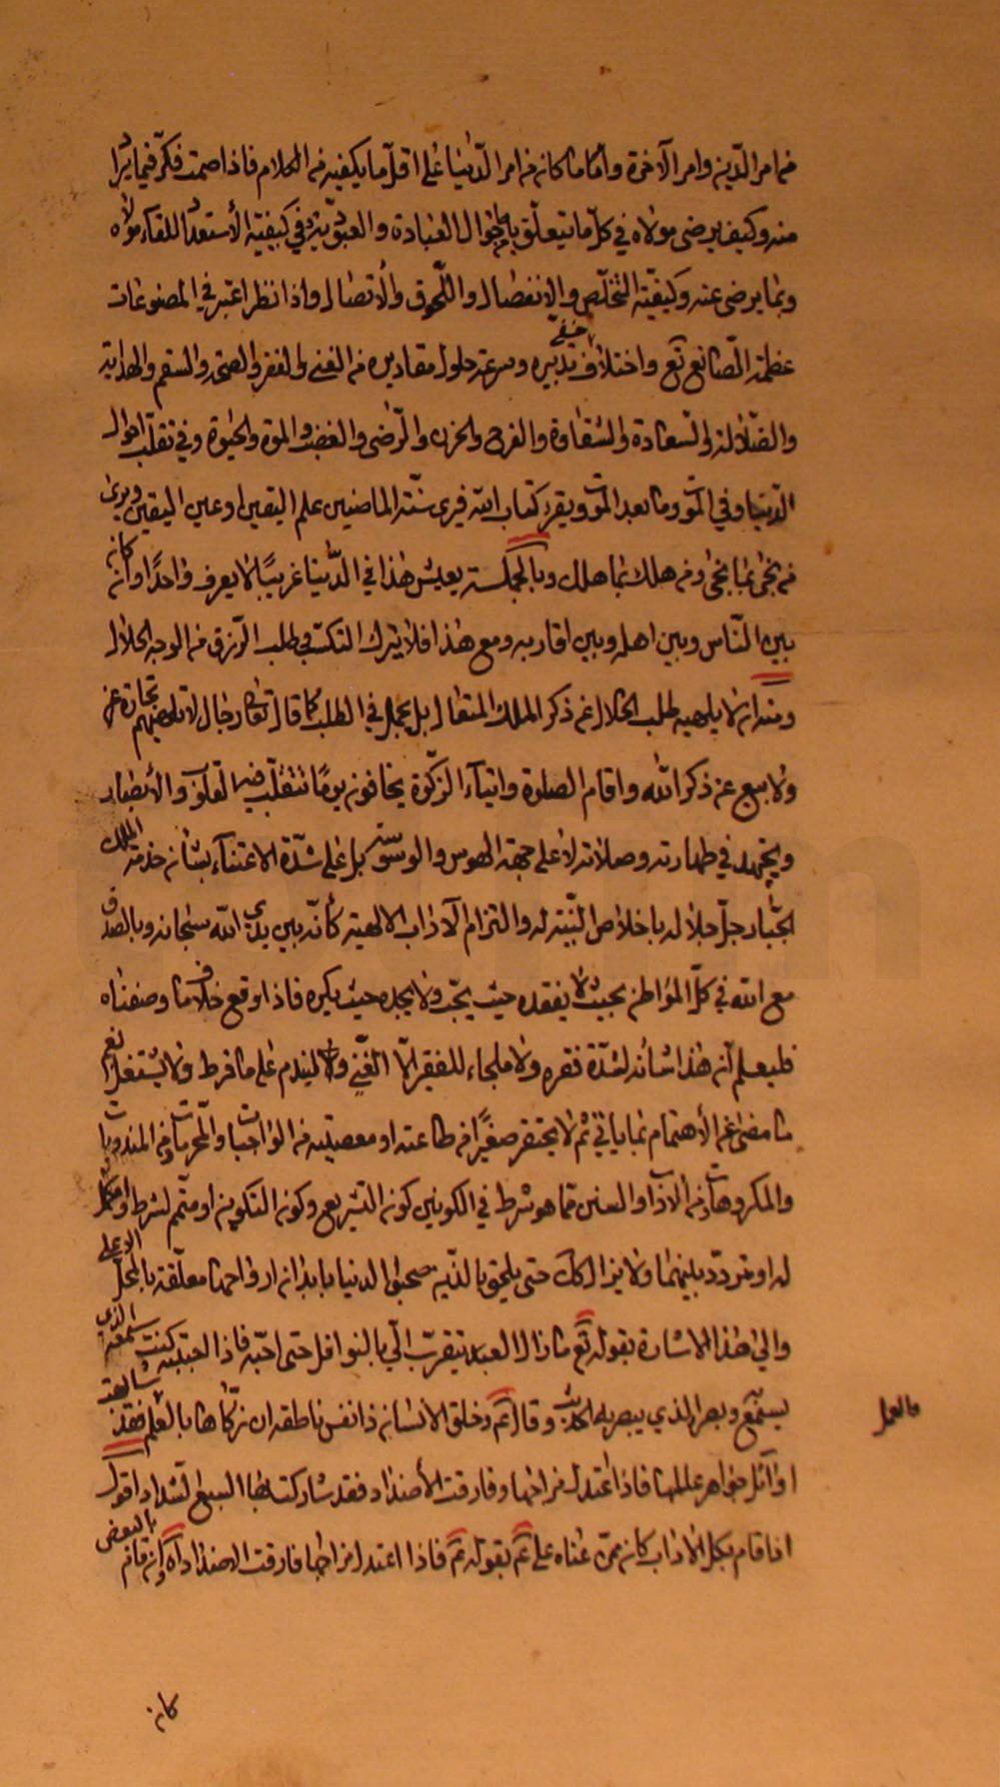 من امر الدّين وامر الآخرة وأمّا ما كان من امر الدّنيا فعلى اقلّ ما يكفيه من الكلام فاذا صمت فكّر فيما يراد
منه وكيف يرضى مولاه في كلّ ما يتعلّق به من احوال العبادة والعبوديّة وفي كيفيّة الأستعداد للقاء مولاه
وبما يرضى عنه وكيفيّة التخلّص والانفصال واللّحوق والأتصال واذا نظر اعتبر في المصنوعات
عظمة الصّانع تع واختلاف تدبيره وسرعة حلول مقاديره من الغنى والفقر والصحّة والسقم والهداية
والضّلالة والسّعادة والشقاوة والفرح والحزن والرّضى والغضب والموة والحيوة وفي تقلّب احوال
الدّنيا وفي الموت وما بعد الموت ويقرء كتاب الله فيرى سنّة الماضين علم اليقين او عين اليقين ويرى
من نجى بما نجى ومن هلك بما هلك وبالجملة يعيش هذا في الدّنيا غريبًا لا يعرف واحدًا وان كان
بين النّاس وبين اهله وبين اقاربه ومع هذا فلا يترك التكسّب في طلب الرّزق من الوجه الحلال
ومنه ان لا يلهيه طلب الحلال عن ذكر الملك المتعال بل يجمل في الطلب كما قال تعالى رجال لا تلهيهم تجارة
ولا بيع عن ذكر الله واقام الصلوة وايتآء الزكوة يخافون يومًا تتقلّب فيه القلوب والأبصار
ويجتهد في طهارته وصلاته لا على جهة الهوس والوسوسة بل على شدّة الاعتنآء بشان خدمة الملك
الجبّار جلّ جلاله باخلاص النّية له والتزام الآداب الالهية كأنّه بين يدي الله سبحانه وبالصدق
مع الله في كلّ المواطن بحيث لا يفقده حيث يحبّ ولا يجده حيث يكره فاذا وقع خلاف ما وصفناه
فليعلم أنّ هذا شأنه لشدّة فقره ولا ملجاء للفقير الّا الغني وليندم على ما فرط ولا يشتغل
ما مضى عن الأهتمام بما يأتي ثم لا يحتقر صغيرًا من طاعته او معصيته من الواجبات والمحرّمات ومن المندوبات
والمكروهات ومن الآداب والسنن مما هو شرط في الكونين كون التشريع وكون التكوين او متمّم لشرط او مكمّل
له او متردّد بينهما ولا يزال كك حتى يلحق بالذين صحبوا الدنيا بابدان ارواحها معلّقة بالمحلّ الاعلى
والى هذا الاشارة بقوله تع ما زال العبد يتقرب الّي بالنوافل حتى احبّه فاذا احببته كنت سمعه الذي
يسمع به وبصره الذي يبصر به الحديث وقال ع وخلق الانسان ذا نفس ناطقة ان زكّاها بالعلم فقد شابهت
والعمل
اوآئل جواهر عللها فاذا اعتدل مزاجها وفارقت الأضداد فقد شارك بها السبع الشداد اقول
اذا قام بكل الآداب كان ممّن عناه علي ع بقوله ع فاذا اعتدل مزاجها وفارقت الاضداد آه وان قام بالبعض
كان